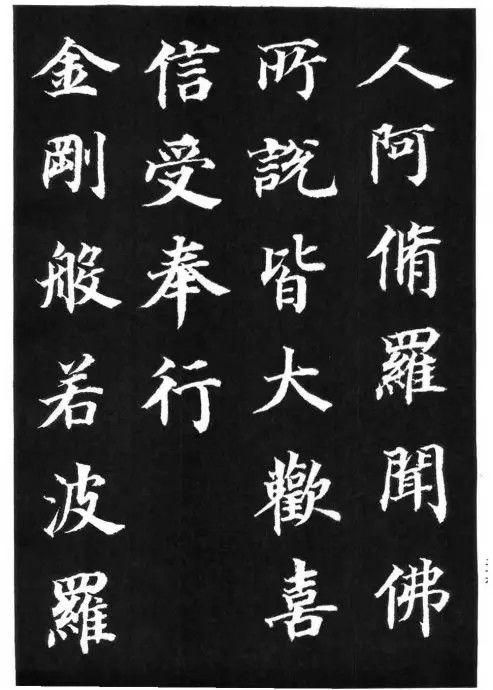 人阿脩羅聞佛
所說皆大歡喜
信受奉行
金剛般若波羅